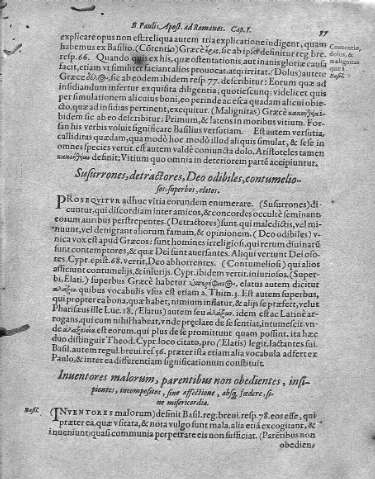 B. Paulis, Apost. ad Romanos. Cap. I. 97
explicare opus non est: reliqua autem tria explicatione indigent, quam
habemus ex Basilio. (Contentio) Græcè sic ab ipso definitur reg. bre.
resp. 66. Quando quis ex his, quæ ostentationis aut inanis gloriæ causa
facit, etiam vt similiter faciant alios prouocat, atq; irritat. (Dolus) autem
Græcè sic ab eodem ibidem resp. 77. describitur: Eorum quæ ad
insidiandum infertur exquisita diligentia, quotiescunq; videlicet quis
per simulationem alicuius boni, eo perinde ac esca quadam alicui obie-
cto, quæ ad insidias pertinent, exequitur. (Malignitas) Græcè
ibidem sic ab eo describitur: Primum, & latens in moribus vitium. For-
san his verbis voluit significare Basilius versutiam. Est autem versutia,
calliditas quædam, qua modò hoc modò illud aliquis simulat, & sese in
omnes species vertit. est autem valdè comuncta dolo. Aristoteles tamen
definit; Vitium quo omnia in deteriorem partē accipiuntur.
Contentio,
dolus, &
malignitas
Basil.
Susurrones, detractores, Deo odibiles, contumelio-
si, superbos, elatos.
PROSEQVITVR adhuc vitia eorundem enumerare. (Susurrones) di-
cuntur, qui discordiam inter amicos, & concordes occultè seminant
eorum auribus perstrepentes. (Detractores) sunt, qui maledictis, vel mi-
nuunt, vel denigrant aliorum famam, & opinionem. (Deo odibiles) v-
nica vox est apud Græcos: sunt homines irreligiosi, qui rerum diuinarū
sunt contemptores, & quæ Dei sunt auersantes. Aliqui verrunt Dei oso-
res. Cypr. epist. 68. vertit, Deo abhorrentes. (Contumeliosi) qui alios
afficiunt contumelijs, & iniurijs. Cypr. ibidem vertit. iniuriosos. (Super-
bi, Elati.) superbus Græcè habetur elatus autem dicitur
quibus vocabulis vsus est etiam 2. Thim. 3. Est autem superbus,
qui propter ea bona, quæ habet, nimium inflatur, & alijs se præfert, velut
Pharisæus ille Luc. 18. (Elatus) autem seu idem est ac Latinè ar-
rogans, qui cum nihil habeat, vnde prę celare de se sentiat, intumescit vn-
de est eorum, qui plus de se promittunt quam possint. ita hæc
duo distinguit Theod. Cypr. loco citato, pro (Elatis) legit, Iactantes sui.
Basil. autem regul. breui. resp. 56. præter ista etiam alia vocabula adfert ex
Paulo, & inter ea differentiam significationum constituit.
Inuentores malorum, parentibus non obedientes, insi-
pientes, incompositos, sine affectione, absq; fœdere, si-
ne misericordia.
Basil.
INVENTORES malorum) definit Basil. reg. breui. resp. 78. eos esse, qui
præter ea, quæ vsitata, & nota vulgo sunt mala, alia etiã excogitant, &
inueniunt, quasi communia perpetrare eis non sufficiat. (Parentibus non
obedien,